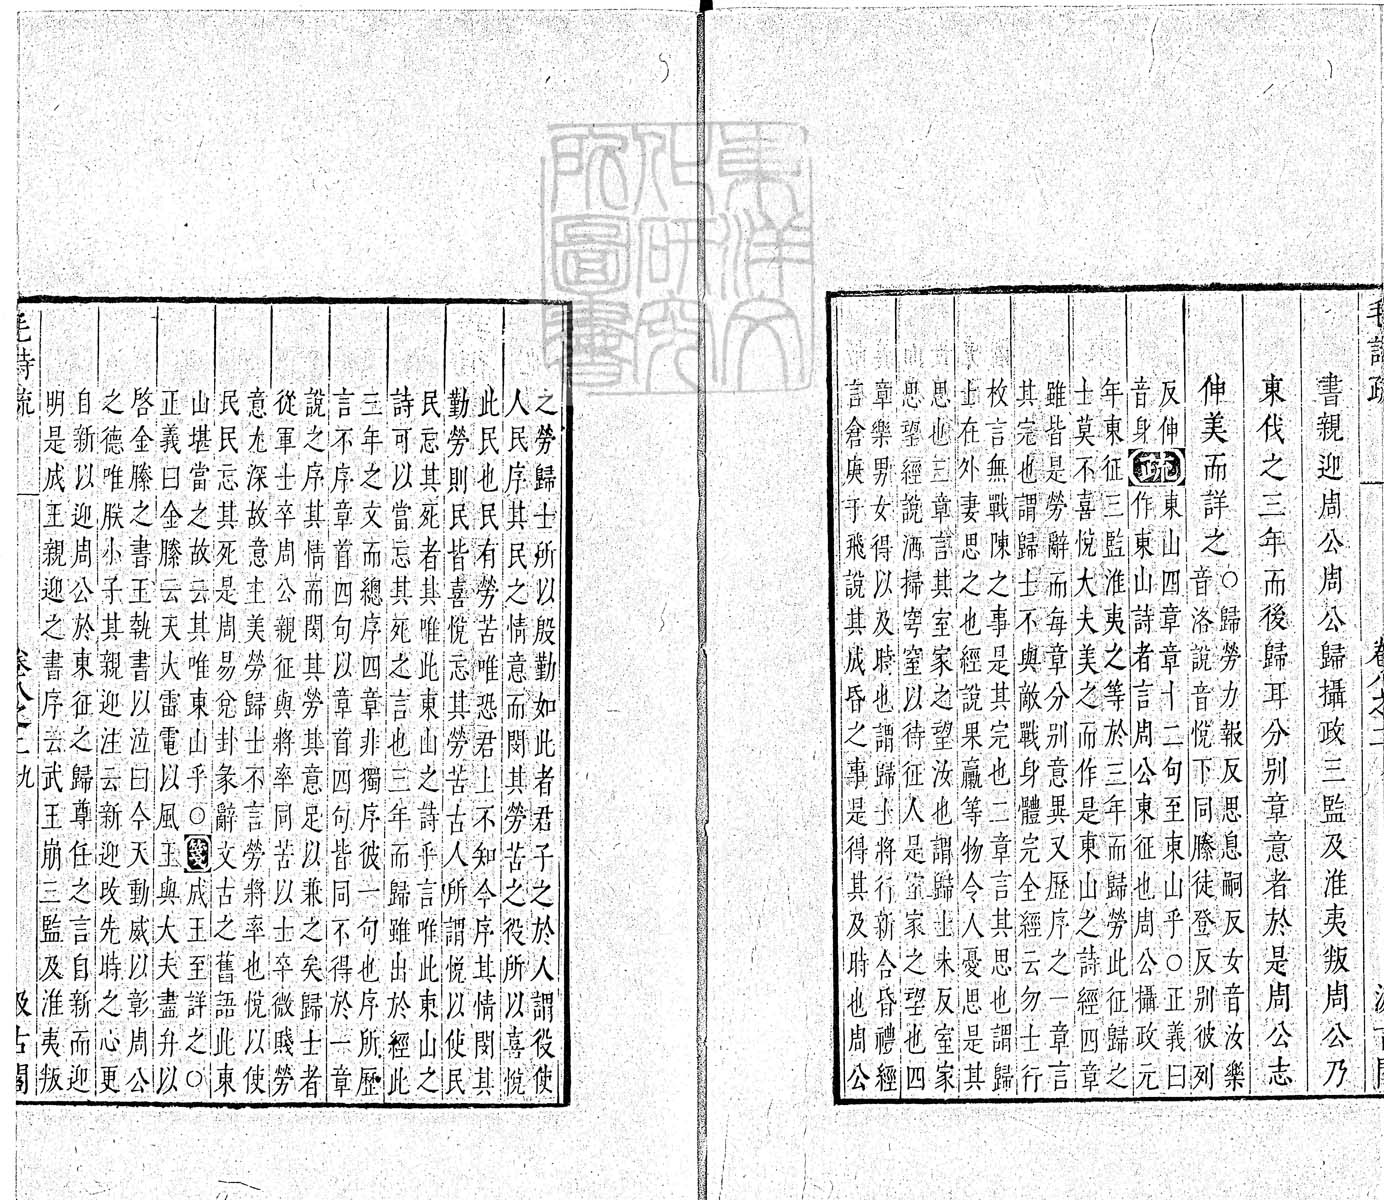 毛詩疏
書親迎周公周公歸攝政三監及淮夷叛周公乃
東伐之三年而後歸耳分别章意者於是周公志
伸美而詳之
○歸勞力報反思息嗣反女音汝樂
音洛說音悅下同勝徒登反别彼列
反伸
音身
疏
東山四章章十二句至東山乎○正義曰
作東山詩者言周公東征也周公攝政元
年東征三監淮夷之等於三年而歸勞此征歸之
士莫不喜悅大夫美之而作是東山之詩經四章
雖皆是勞辭而每章分别意異又歷序之一章言
其完也謂歸士不與敵戰身體完全經云勿士行
枚言無戰陳之事是其完也二章言其思也謂歸
士在外妻思之也經說果臝等物令人憂思是其
思也三章言其室家之望汝也謂歸士未反室家
思望經說洒掃穹窒以待征人是室家之望也四
章樂男女得以及時也謂歸士將行新合昏禮經
言倉庚于飛說其成昏之事是得其及時也周公
之勞歸士所以殷勤如此者君子之於人謂役使
人民序其民之情意而閔其勞苦之役所以喜悅
此民也民有勞苦唯恐君上不知今序其情閔其
勤勞則民皆喜悅忘其勞苦古人所謂悅以使民
民忘其死者其唯此東山之詩乎言唯此東山之
詩可以當忘其死之言也三年而歸雖出於經此
三年之文而總序四章非獨序彼一句也序所歷
言不序章首四句以章首四句皆同不得於一章
說之序其情而閔其勞其意足以兼之矣歸士者
從軍士卒周公親征與將率同苦以士卒微賤勞
意尤深故意主美勞歸士不言勞將率也悅以使
民民忘其死是周易兌卦彖辭文古之舊語此東
山堪當之故云其唯東山乎○
箋
成王至詳之○
正義曰金縢云天大雷電以風王與大夫盡弁以
啓金縢之書王執書以泣曰今天動威以彰周公
之德唯朕小子其親迎注云新迎改先時之心更
自新以迎周公於東征之歸尊任之言自新而迎
明是成王親迎之書序云武王崩三監及淮夷叛
毛詩疏
卷八之二
九
汲古閣